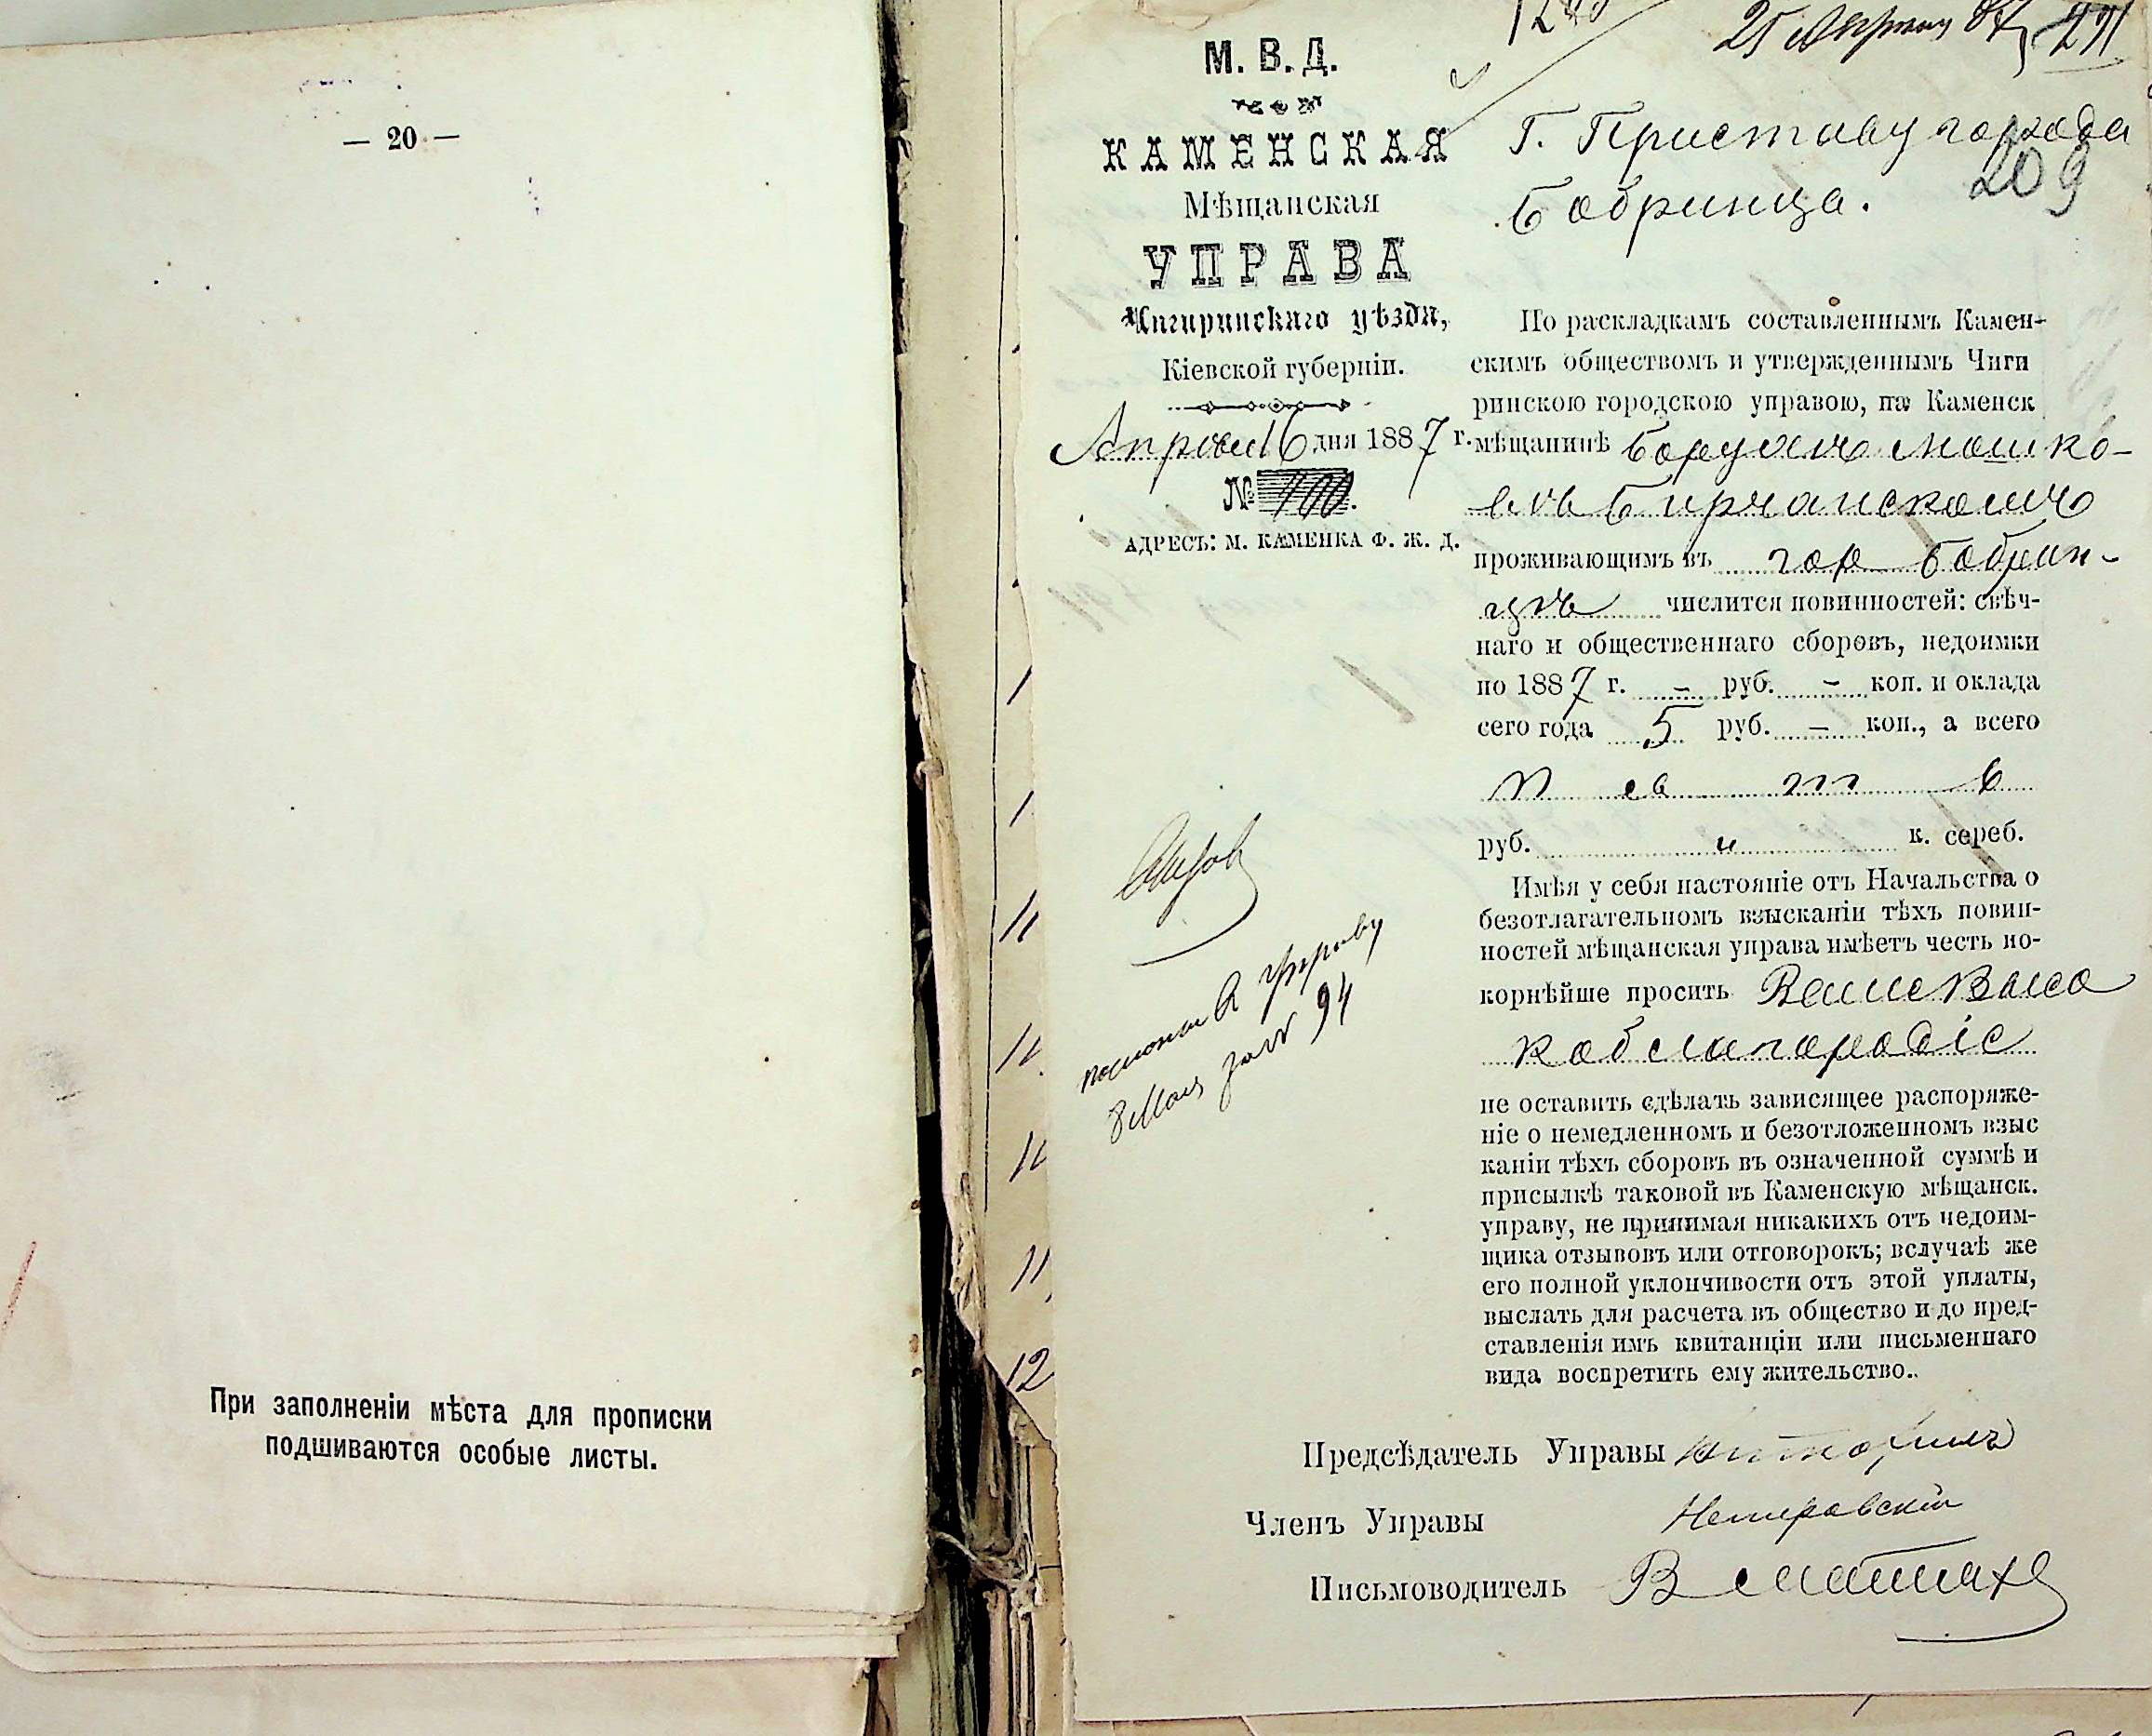 — 20 —
При заполненіи мѣста для прописки
подшиваются особые листы.
25 Апрѣля 87
М. В. Д.
КАМЕНСКАЯ
Мѣщанская
УПРАВА
Чигиринскаго уѣзда,
Кіевской губерніи.
Апрѣля 16 дня 1887 г.
№ 700.
АДРЕСЪ: М. КАМЕНКА Ф. Ж. Д.
Г. Приставу города
209
Бобринца.
По раскладкамъ составленнымъ Камен-
скимъ обществомъ и утвержденнымъ Чиги
ринскою городскою управою, на Каменск
мѣщанинѣ Борухѣ Мошко-
вѣ Бирчанскомъ
проживающимъ въ гор Бобрин-
цѣ числится повинностей: свѣч-
наго и общественнаго сборовъ, недоимки
по 1887 г. - руб. - коп. и оклада
сего года 5 руб. - коп., а всего
пять
руб. " к. сереб.
Имѣя у себя настояніе отъ Начальства о
безотлагательномъ взысканіи тѣхъ повин-
ностей мѣщанская управа имѣетъ честь по-
корнѣйше просить Ваше Высо
коблагородіе
не оставить сдѣлать зависящее распоряже-
ніе о немедленномъ и безотложенномъ взыс
каніи тѣхъ сборовъ въ означенной суммѣ и
присылкѣ таковой въ Каменскую мѣщанск.
управу, не принимая никакихъ отъ недоим-
щика отзывовъ или отговорокъ; вслучаѣ же
его полной уклончивости отъ этой уплаты,
выслать для расчета въ общество и до пред-
ставленія имъ квитанціи или письменнаго
вида воспретить ему жительство..
управу
8 Мая 94
Предсѣдатель Управы
Членъ Управы
Письмоводитель
1
1
12